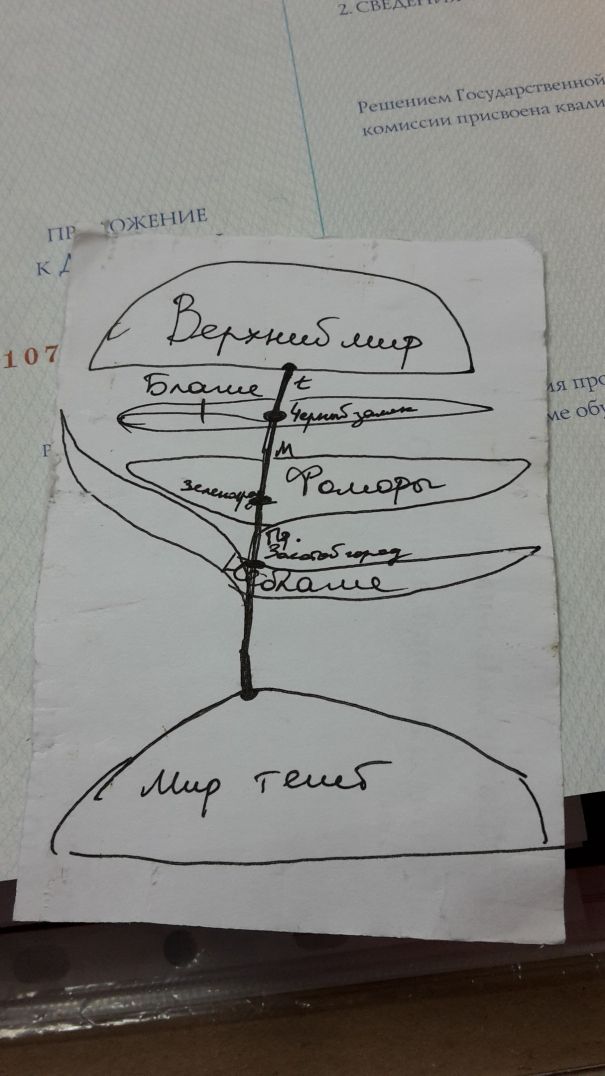 2. СВЕДЕНИЯ
Решением Государственной
комиссии присвоена квали
ПР ОЖЕНИЕ
К Д
107
ия про
ме обу
Верхний мир
t
Благие
Черный замок
М
Фоморы
Пр.
Золотой город
Мир теней